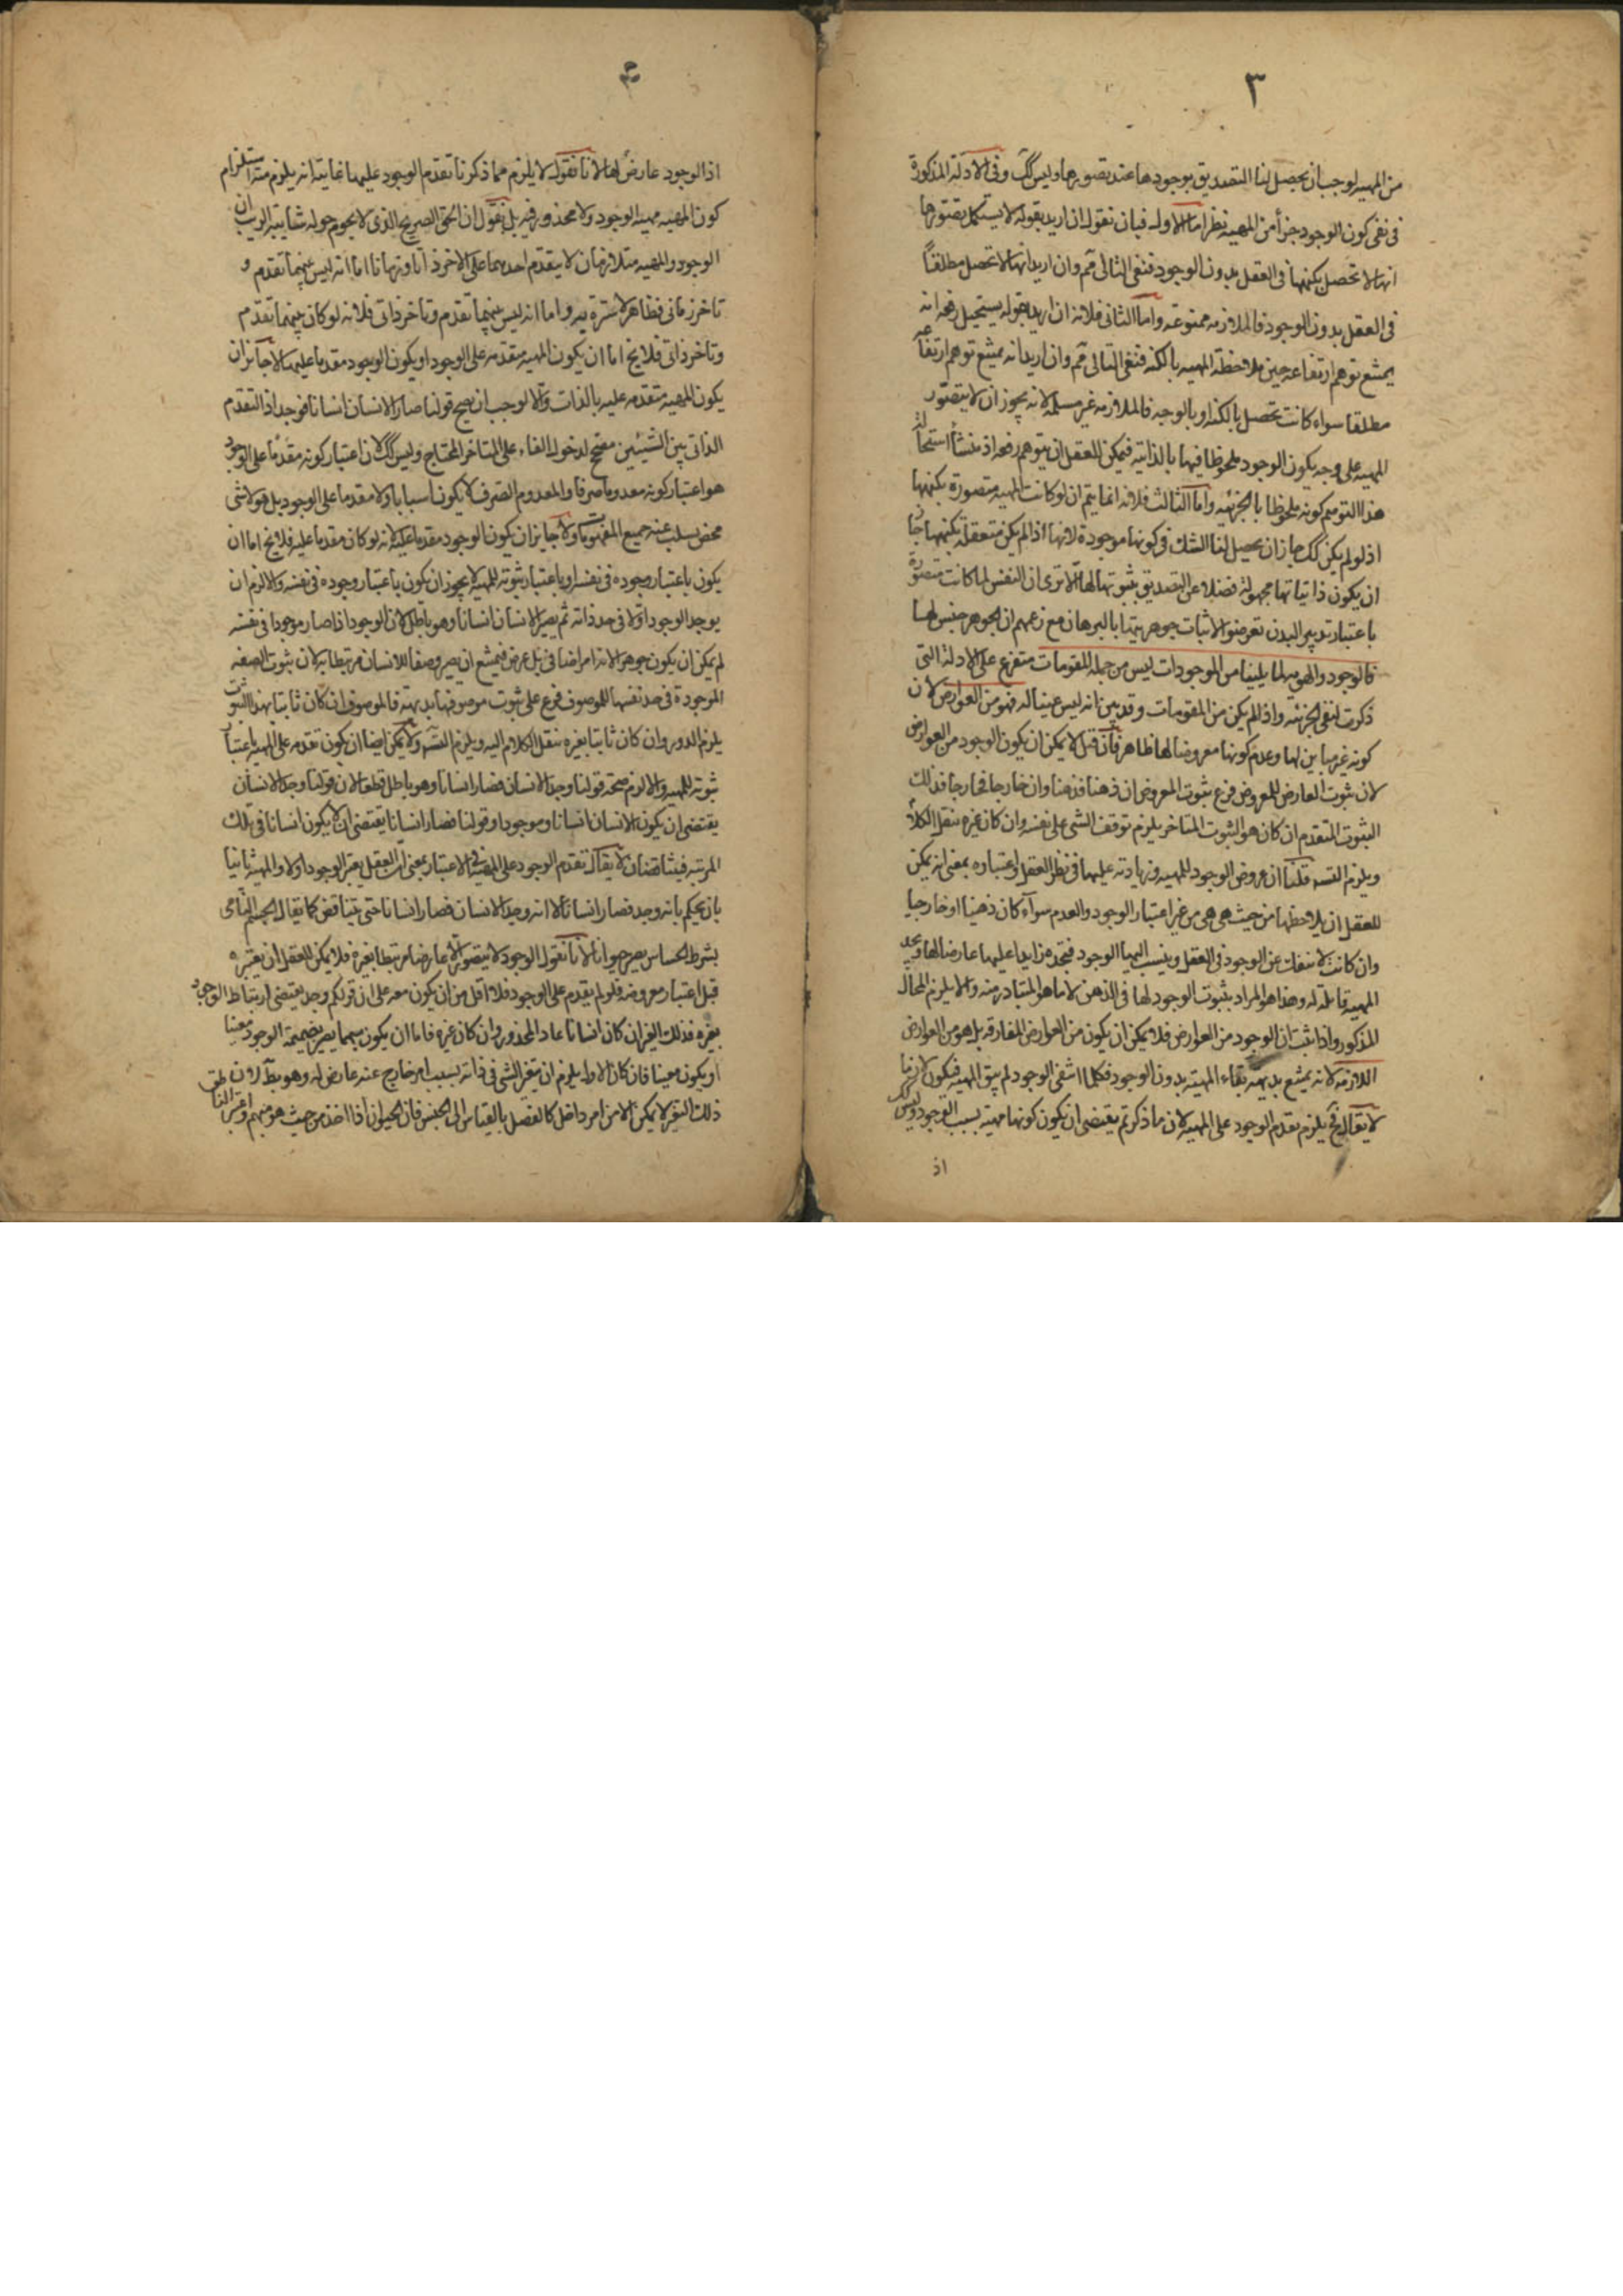 ٣
من المهيه لوجب ان يحصل لنا التصديق بوجودها عند تصورها وليس كك وفى الادلة المذكورة
فى نفى كون الوجود جزأ من المهيه نظر اما الاول فبان نقول ان اريد بقوله لا يستكمل تصورها
انها لا تحصل بكنهها فى العقل بدون الوجود فنفى التالى مم وان اريد انها لا تحصل مطلقاً
فى العقل بدون الوجود فالملازمه ممنوعه واما الثانى فلانه ان اريد بقوله يستحيل رفعه انه
يمتنع توهم ارتفاعه حين ملاحظة المهيه بالكنه فنفى التالى مم وان اريد انه يمتنع توهم ارتفاعه
مطلقا سواء كانت تحصل بالكنه او بالوجه فالملازمه غير مسلمه لانه يجوز ان لا يتصور
المهيه على وجه يكون الوجود ملحوظا فيها بالذاتيه فيمكن للعقل ان يتوهم رفعه اذ منشأ استحالة
هذا التوهم كونه ملحوظا بالجزئيه واما الثالث فلانه انما يتم ان لو كانت المهيه متصورة بكنهها
اذ لو لم يكن كك جاز ان يحصل لنا الشك فى كونها موجودة لانها اذا لم يكن متعقلة بكنهها جاز
ان يكون ذاتياتها مجهولة فضلا عن التصديق بثبوتها لها الا ترى ان النفس لما كانت متصورة
باعتبار تدبير البدن تعرضوا لاثبات جوهريتها بالبرهان مع زعمهم ان الجوهر جنس لها
فالوجود والهويه لما يلينا من الموجودات ليس من جمله المقومات متفرع على الادلة التى
ذكرت لنفى الجزئيه واذ لم يكن من المقومات وقد بين انه ليس عينا له فهو من العوارض لان
كونه غير مباين لها وعدم كونها معروضا لها ظاهر فان قيل لا يمكن ان يكون الوجود من العوارض
لان ثبوت العارض للمعروض فرع ثبوت المعروض ان ذهنا فذهنا وان خارجا فخارجا فذلك
الثبوت المتقدم ان كان هو الثبوت المتاخر يلزم توقف الشى على نفسه وان كان غيره ننقل الكلام
ويلزم التسه قلنا ان عروض الوجود للمهيه وزيادته عليها فى نظر العقل واعتباره بمعنى انه يمكن
للعقل ان يلاحظها من حيث هى هى من غير اعتبار الوجود والعدم سوآء كان ذهنيا او خارجيا
وان كانت لا تنفك عن الوجود فى العقل وينسب اليها الوجود فيجده زايدا عليها عارضا لها ويجد
المهيه قابلة له وهذا هو المراد بثبوت الوجود لها فى الذهن لا ما هو المتبادر منه والا يلزم المحال
المذكور واذا ثبت ان الوجود من العوارض فلا يمكن ان يكون من العوارض المفارقه بل هو من العوارض
اللازمه لانه يمتنع بديهه بقاء المهيه بدون الوجود فكلما انتفى الوجود لم يبق المهيه فيكون لازما
لا يقال فح يلزم تقدم الوجود على المهيه لان ما ذكرتم يقتضى ان يكون كونها مهيه بسبب الوجود وليس كك
اذ
اذ الوجود عارض لها لانا نقول لا يلزم مما ذكرنا تقدم الوجود عليها غايته انه يلزم منه استلزام
كون المهيه مهيه الوجود ولا محذور فيه بل نقول ان الحق الصريح الذى لا يحوم حوله شايبة الريب ان
الوجود والمهيه متلازمان لا يتقدم احدهما على الاخر ذاتا وزمانا اما انه ليس بينهما تقدم و
تاخر زمانى فظاهر لا سترة به واما انه ليس بينهما تقدم وتاخر ذاتى فلانه لو كان بينهما تقدم
وتاخر ذاتى فلا يخ اما ان يكون المهيه متقدمه على الوجود او يكون الوجود مقدما عليها لا جائز ان
يكون المهيه متقدمه عليه بالذات والا لوجب ان يصح قولنا صار الانسان انسانا فوجد اذ التقدم
الذاتى بين الشيئين مصحح لدخول الفاء على المتاخر المحتاج وليس كك لان اعتبار كونه مقدما على الوجود
هو اعتبار كونه معدوما صرفا والمعدوم الصرف لا يكون اسبابا ولا مقدما على الوجود بل هو لا شى
محض يسلب عنه جميع المفهومات ولا جايز ان يكون الوجود مقدما عليه لانه لو كان مقدما عليه فلا يخ اما ان
يكون باعتبار وجوده فى نفسه او باعتبار ثبوته للمهيه لا يجوز ان يكون باعتبار وجوده فى نفسه والا لزم ان
يوجد الوجود اولا فى حد ذاته ثم يصير الانسان انسانا وهو باطل لان الوجود اذا صار موجودا فى نفسه
لم يمكن ان يكون جوهرا لانه امر اضافى بل عرض فيمتنع ان يصير وصفا للانسان مرتبطا به لان ثبوت الصفه
الموجودة فى حد نفسها للموصوف فرع على ثبوت موصوفها بديهة فالموصوف ان كان ثابتا بهذا الثبوت
يلزم الدور وان كان ثابتا بغيره ننقل الكلام اليه ويلزم التسه ولا يمكن ايضا ان يكون تقدمه على المهيه باعتبار
ثبوته للمهيه والا لزم صحة قولنا وجد الانسان فصار انسانا وهو باطل قطعا لان قولنا وجد الانسان
يقتضى ان يكون الانسان انسانا وموجودا وقولنا فصار انسانا يقتضى ان لا يكون انسانا فى تلك
المرتبه فيتناقضان لا يقال تقدم الوجود على المهيه فى الاعتبار بمعنى ان العقل يعتبر الوجود اولا والمهيه ثانيا
بان يحكم بانه وجد فصار انسانا لا انه وجد الانسان فصار انسانا حتى يتناقض كما يقال الجسم النامى
بشرط الحساس يصير حيوانا لانا نقول الوجود لا يتصور الا عارضا مرتبطا بغيره فلا يمكن للعقل ان يعتبره
قبل اعتبار معروضه فلو لم يتقدم على الوجود فلا اقل من ان يكون معه على ان قولكم وجد يقتضى ارتباط الوجود
بغيره فذلك الغير ان كان انسانا عاد المحذور وان كان غيره فاما ان يكون مبهما يصير بضميمة الوجود معينا
او يكون معينا فان كان الاول يلزم ان يتغير الشى فى ذاته بسبب امر خارج عنه عارض له وهو بط لان
ذلك التغير لا يمكن الا من امر داخل كالفصل بالقياس الى الجنس فان الحيوان اذا اخذ من حيث هو مبهم واعتبر